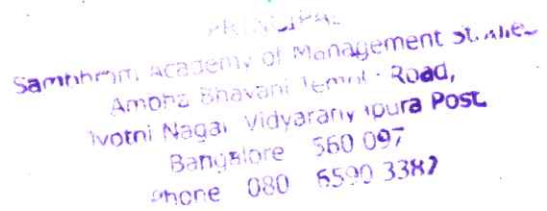 PRINCIPAL
Sambhram Academy of Management Studies
Amoha Bhavani Temple Road,
Jyothi Nagar Vidyaranyapura Post,
Bangalore 560 097
Phone 080 6590 3387